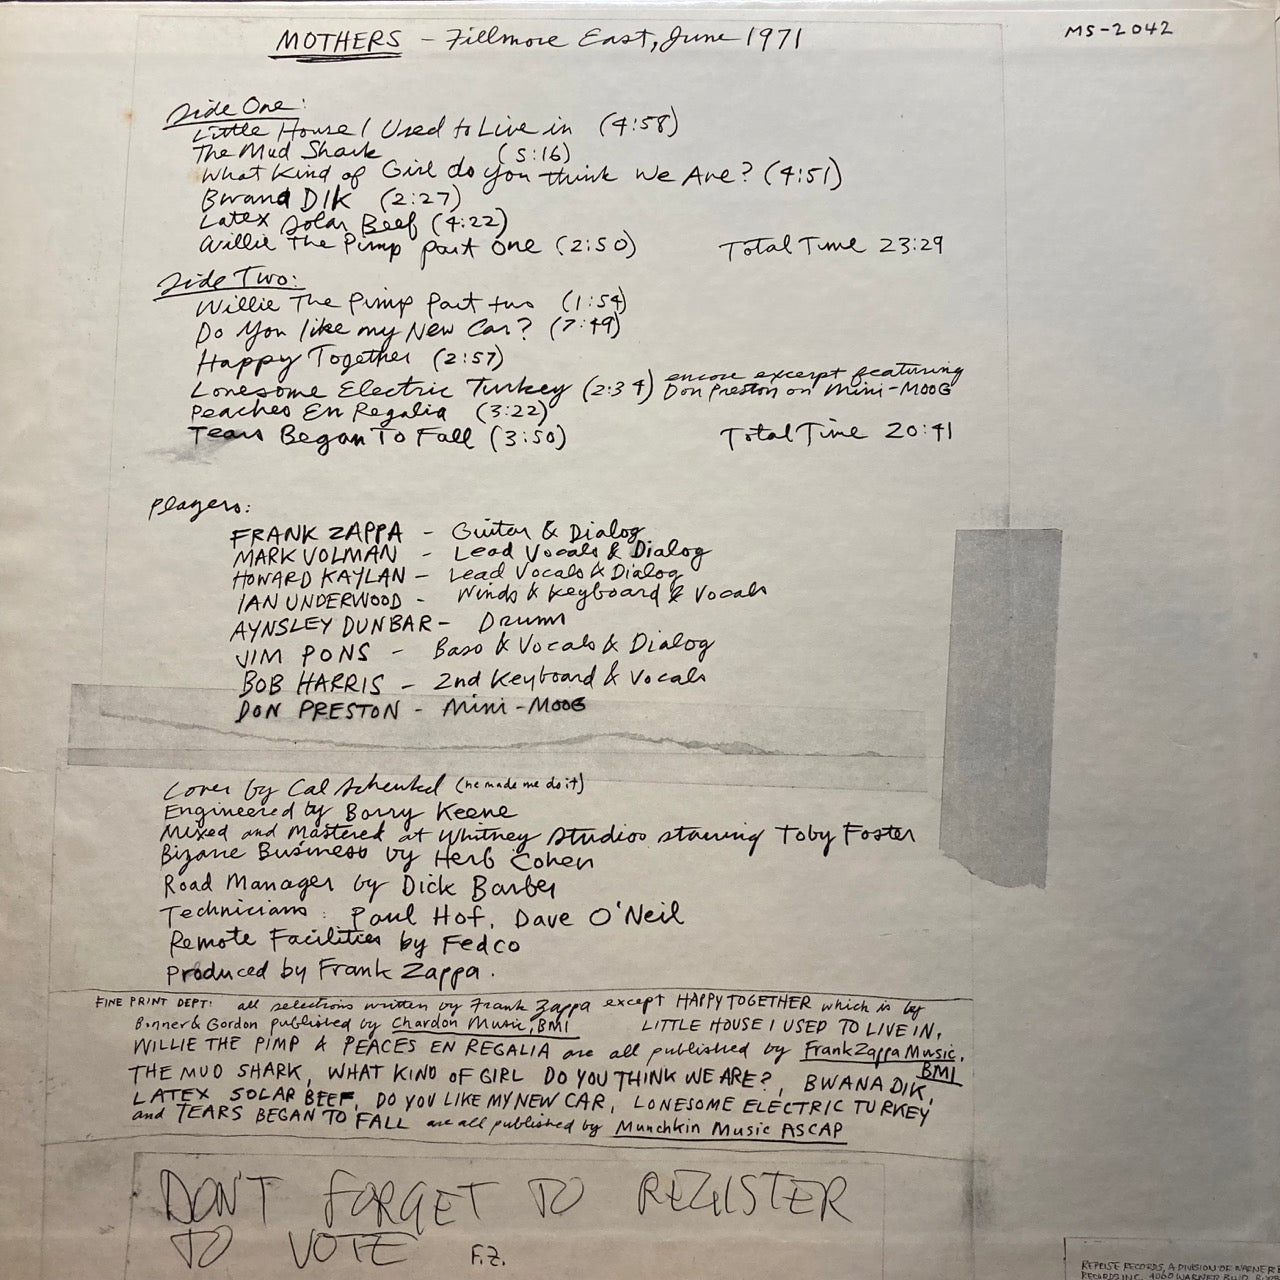 MOTHERS - Fillmore East, June 1971
MS-2042
Side One:
Little House I Used to Live in (4:58)
The Mud Shark (5:16)
What Kind of Girl do you think We Are? (4:51)
Bwana DIK (2:27)
Latex Solar Beef (4:22)
Willie The Pimp part One (2:50) Total Time 23:29
Side Two:
Willie The Pimp Part two (1:54)
Do You like my New Car? (7:49)
Happy Together (2:57)
Lonesome Electric Turkey (2:34) encore excerpt featuring
Don Preston on Mini-MOOG
Peaches En Regalia (3:22)
Tears Began To Fall (3:50) Total Time 20:41
Players:
FRANK ZAPPA - Guitar & Dialog
MARK VOLMAN - Lead Vocals & Dialog
HOWARD KAYLAN - Lead Vocals & Dialog
IAN UNDERWOOD - Winds & Keyboard & Vocals
AYNSLEY DUNBAR - Drums
JIM PONS - Bass & Vocals & Dialog
BOB HARRIS - 2nd Keyboard & Vocals
DON PRESTON - Mini-MOOG
Cover by Cal Schenkel (he made me do it)
Engineered by Barry Keene
Mixed and Mastered at Whitney Studios starring Toby Foster
Bizarre Business by Herb Cohen
Road Manager by Dick Barber
Technicians: Paul Hof, Dave O'Neil
Remote Facilities by Fedco
Produced by Frank Zappa.
FINE PRINT DEPT: all selections written by Frank Zappa except HAPPY TOGETHER which is by
Bonner & Gordon published by Chardon Music, BMI LITTLE HOUSE I USED TO LIVE IN,
WILLIE THE PIMP & PEACES EN REGALIA are all published by Frank Zappa Music,
BMI
THE MUD SHARK, WHAT KIND OF GIRL DO YOU THINK WE ARE?, BWANA DIK,
LATEX SOLAR BEEF, DO YOU LIKE MY NEW CAR, LONESOME ELECTRIC TURKEY
and TEARS BEGAN TO FALL are all published by Munchkin Music ASCAP
DON'T FORGET TO REGISTER
TO VOTE F.Z.
REPRISE RECORDS, A DIVISION OF WARNER
RECORDS INC. 4000 WARNER BLVD.